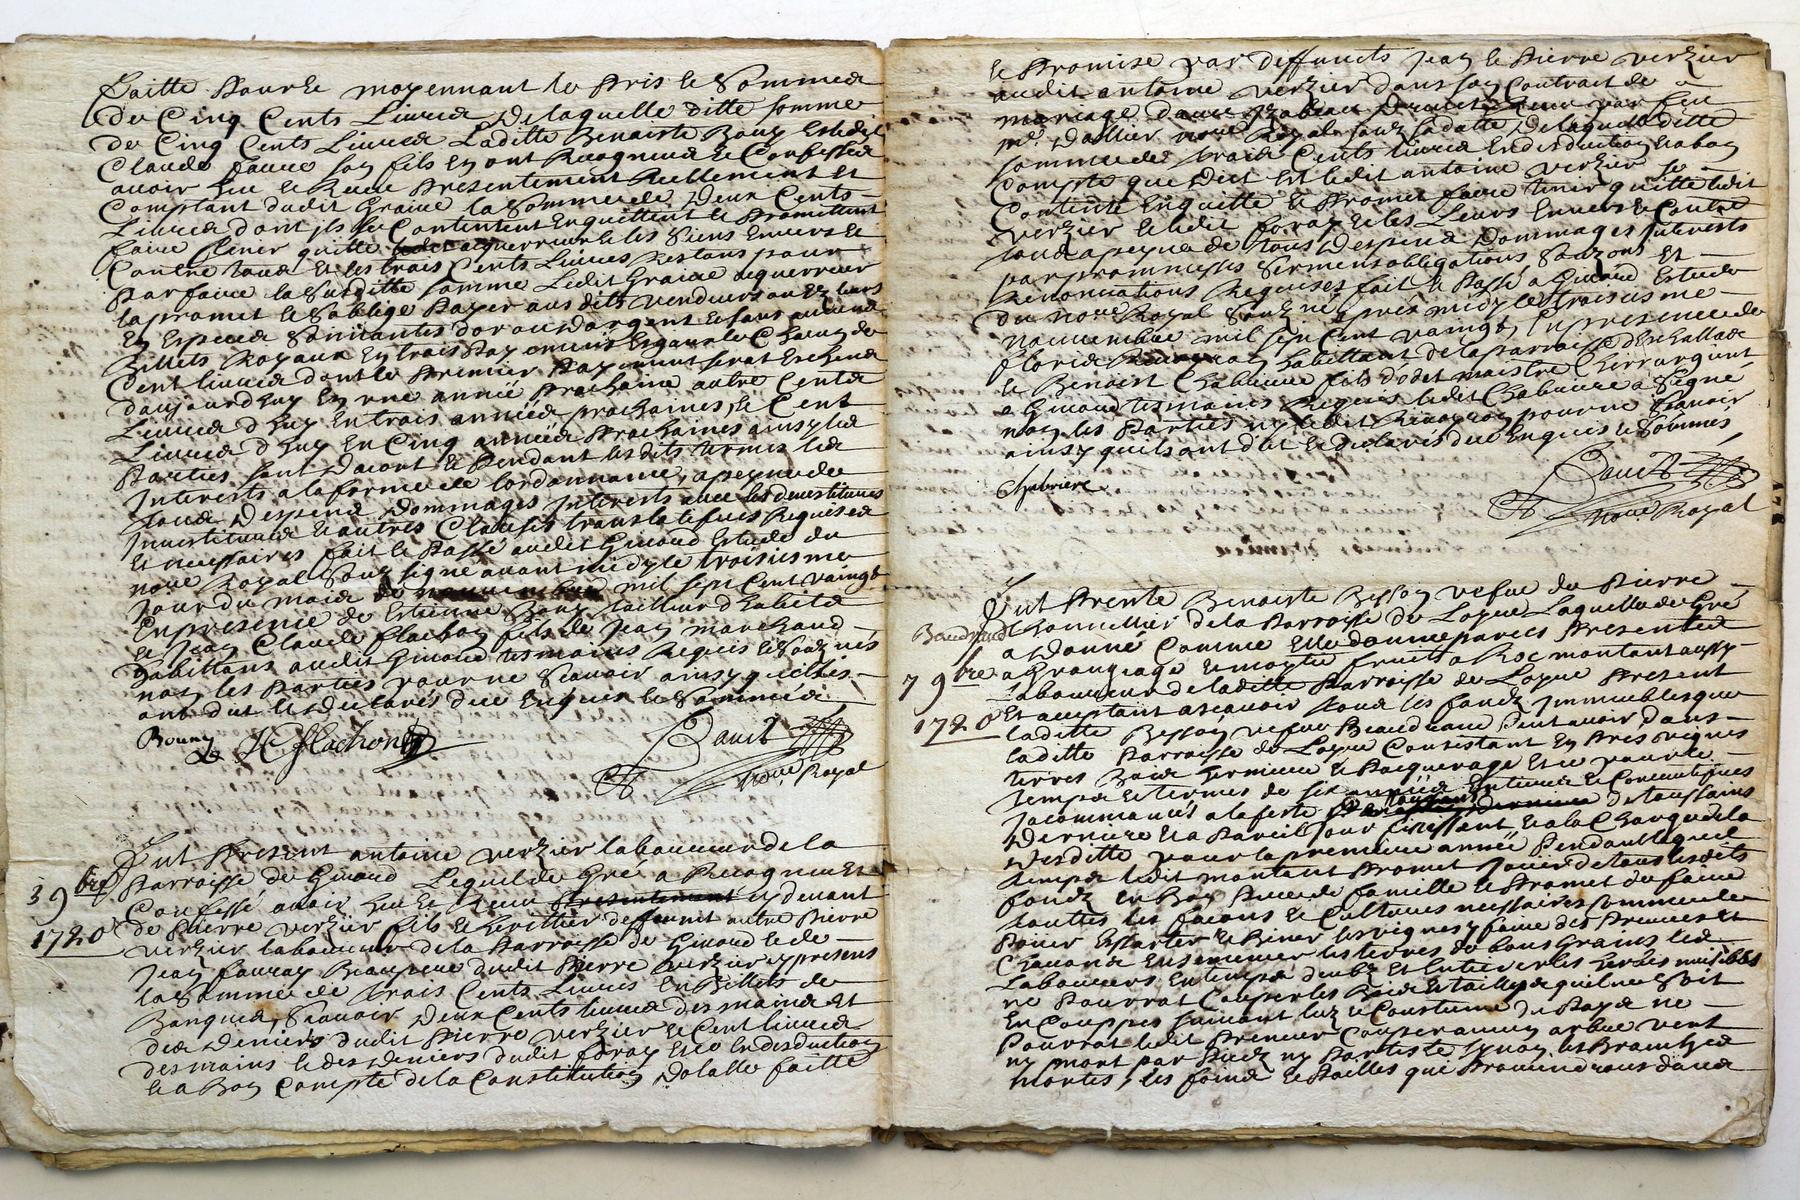 faitte pour le moyennant le pris et somme
de cinq cents livres de laquelle ditte somme
de cinq cents livres laditte Benoiste Bouy et ledit
Claude faure son fils en ont Recogneus et Confessés
avoir heu et Receu presentement reellement et
Comptant dudit Graive la somme de deux cents
Livres dont ils se Contentent en quittent et promettent
faire tenir quitte acquerreur et les siens envers et
Contre tous et les trois cents livres restans pour
parfaire la susditte somme ledit Graive acquerreur
la promet et soblige payer aus dits vendeurs ou es leurs
en especes sonnantes d'or ou d'argent et sans aucuns
Billets Royaux en trois payements esgaux de chacun de
Cent livres dont le premier payement serat eschu
daujourdhuy en une année prochaine autre Cents
Livres dhuy en trois années prochaines, et Cent
Livres dhuy en Cinq années prochaines ainsy les
parties sont dacort et pendant lesdits termes les
Interests a la forme de lordonnance, a peyne de
tous despens dommages Interests avec les devestitures
Investitures et autres Clauses translatifves Requises
et necessaires fait et passé audit Givaud Estude du
no.re Royal souz signé avant midy le troisiesme
jour du mois de mil sept Cent vaingt
En presence de Estienne Bouy tailleur dhabits
et Jean Claude flachon fils de Jean marchand
habittans audit Givaud tesmoins Requis et souz nés
non les parties pour ne sçavoir ainsy qu'elles
ont dit et declarés dece Enquis et sommés
Bouny
JC flachon
no.re Royal
fut present antoine verzier laboureur de la
3 9bre parroisse de Givaud Lequel de Gré a Recogneu et
Confessé avoir heu et Receu presentement cy devant
1720 de Pierre verzier fils et heritier de feunit autre Pierre
verzier laboureur de la parroisse de Givaud et de
Jean foray Beaupere dudit Pierre verzier cy presens
la somme de trois Cents Livres en Billets de
Banque, sçavoir deux Cents livres des mains et
des deniers dudit Pierre verzier et Cent livres
des mains et des deniers dudit foray et ce en desduction
et a Bon Compte de la Constitution dotalle faitte
et promise par deffuncts Jean et Pierre verzier
audit antoine verzier dans son Contrat de
mariage receu par feu
m.e Dallier no.re Royal souz sa datte de laquelle ditte
somme de trois Cents livres en desduction et a bon
Compte que dict est ledit antoine verzier se
Contente en quitte et promet faire tenir quitte ledit
verzier et ledit foray et les Leurs Envers et Contre
tous a peyne de tous despens dommages Interests
par promesses sermens obligations souzons et
Renonciations Requises fait et Passé a Givaud Estude
du no.re Royal souz né apres midy le troisiesme
novembre mil sept Cent vaingt, En presence de
floris habittant de la parroisse
et Benoist Chabriere fils dodet maistre Chirrurgient
a Givaud tesmoins Requis ledit Chabriere a signé
non les Parties ny ledit pour ne sçavoir
ainsy quils ont dit et declarés dece enquis et sommés
Chabriere
no.re Royal
fut presente Benoiste Besson vefve de Pierre
Beaudraud de la Parroisse de Loyre Laquelle de Gré
a donné Comme Elle donne par ces presentes
7 9bre a Grangeage et moytié fruits a Roc montant aussy
laboureur de laditte Parroisse de Loyre present
1720 Et acceptant asçavoir tous les fondz Immeubles que
laditte Besson vefve Beaudraud peut avoir dans
laditte Parroisse de Loyre Consistant en Pres vignes
terres Bois vernieres et Pasquerage et ce pour le
temps et termes de six années entieres et Consecutifves
Jacommancés a la feste de toussains
derniere et a pareil jour finissant, et a la Charge de la
desditte pour la premiere année Pendant lequel
temps ledit montant promet Jouir de tous lesdits
fondz en Bon Pere de famille et Promet de faire
touttes les façons et Cultures necessaires comme de
Poüer Essarter et Biner les vignes y faire des Preuves et
Chavons ensemencer les terres de bons Grains Les
Labourers en temps deubz Et Entiever les herbes nuisibles
ne Pourrat Couper les Bois et taillys quil ne soit
En Couppes suivant luz et Coustume du Pays ne
Pourrat ledit Preneur Couper aucun arbre vert
ny mort par Piedz ny Parteste synon les Branches
mortes, les foins et Pailles que Proviendrons dans